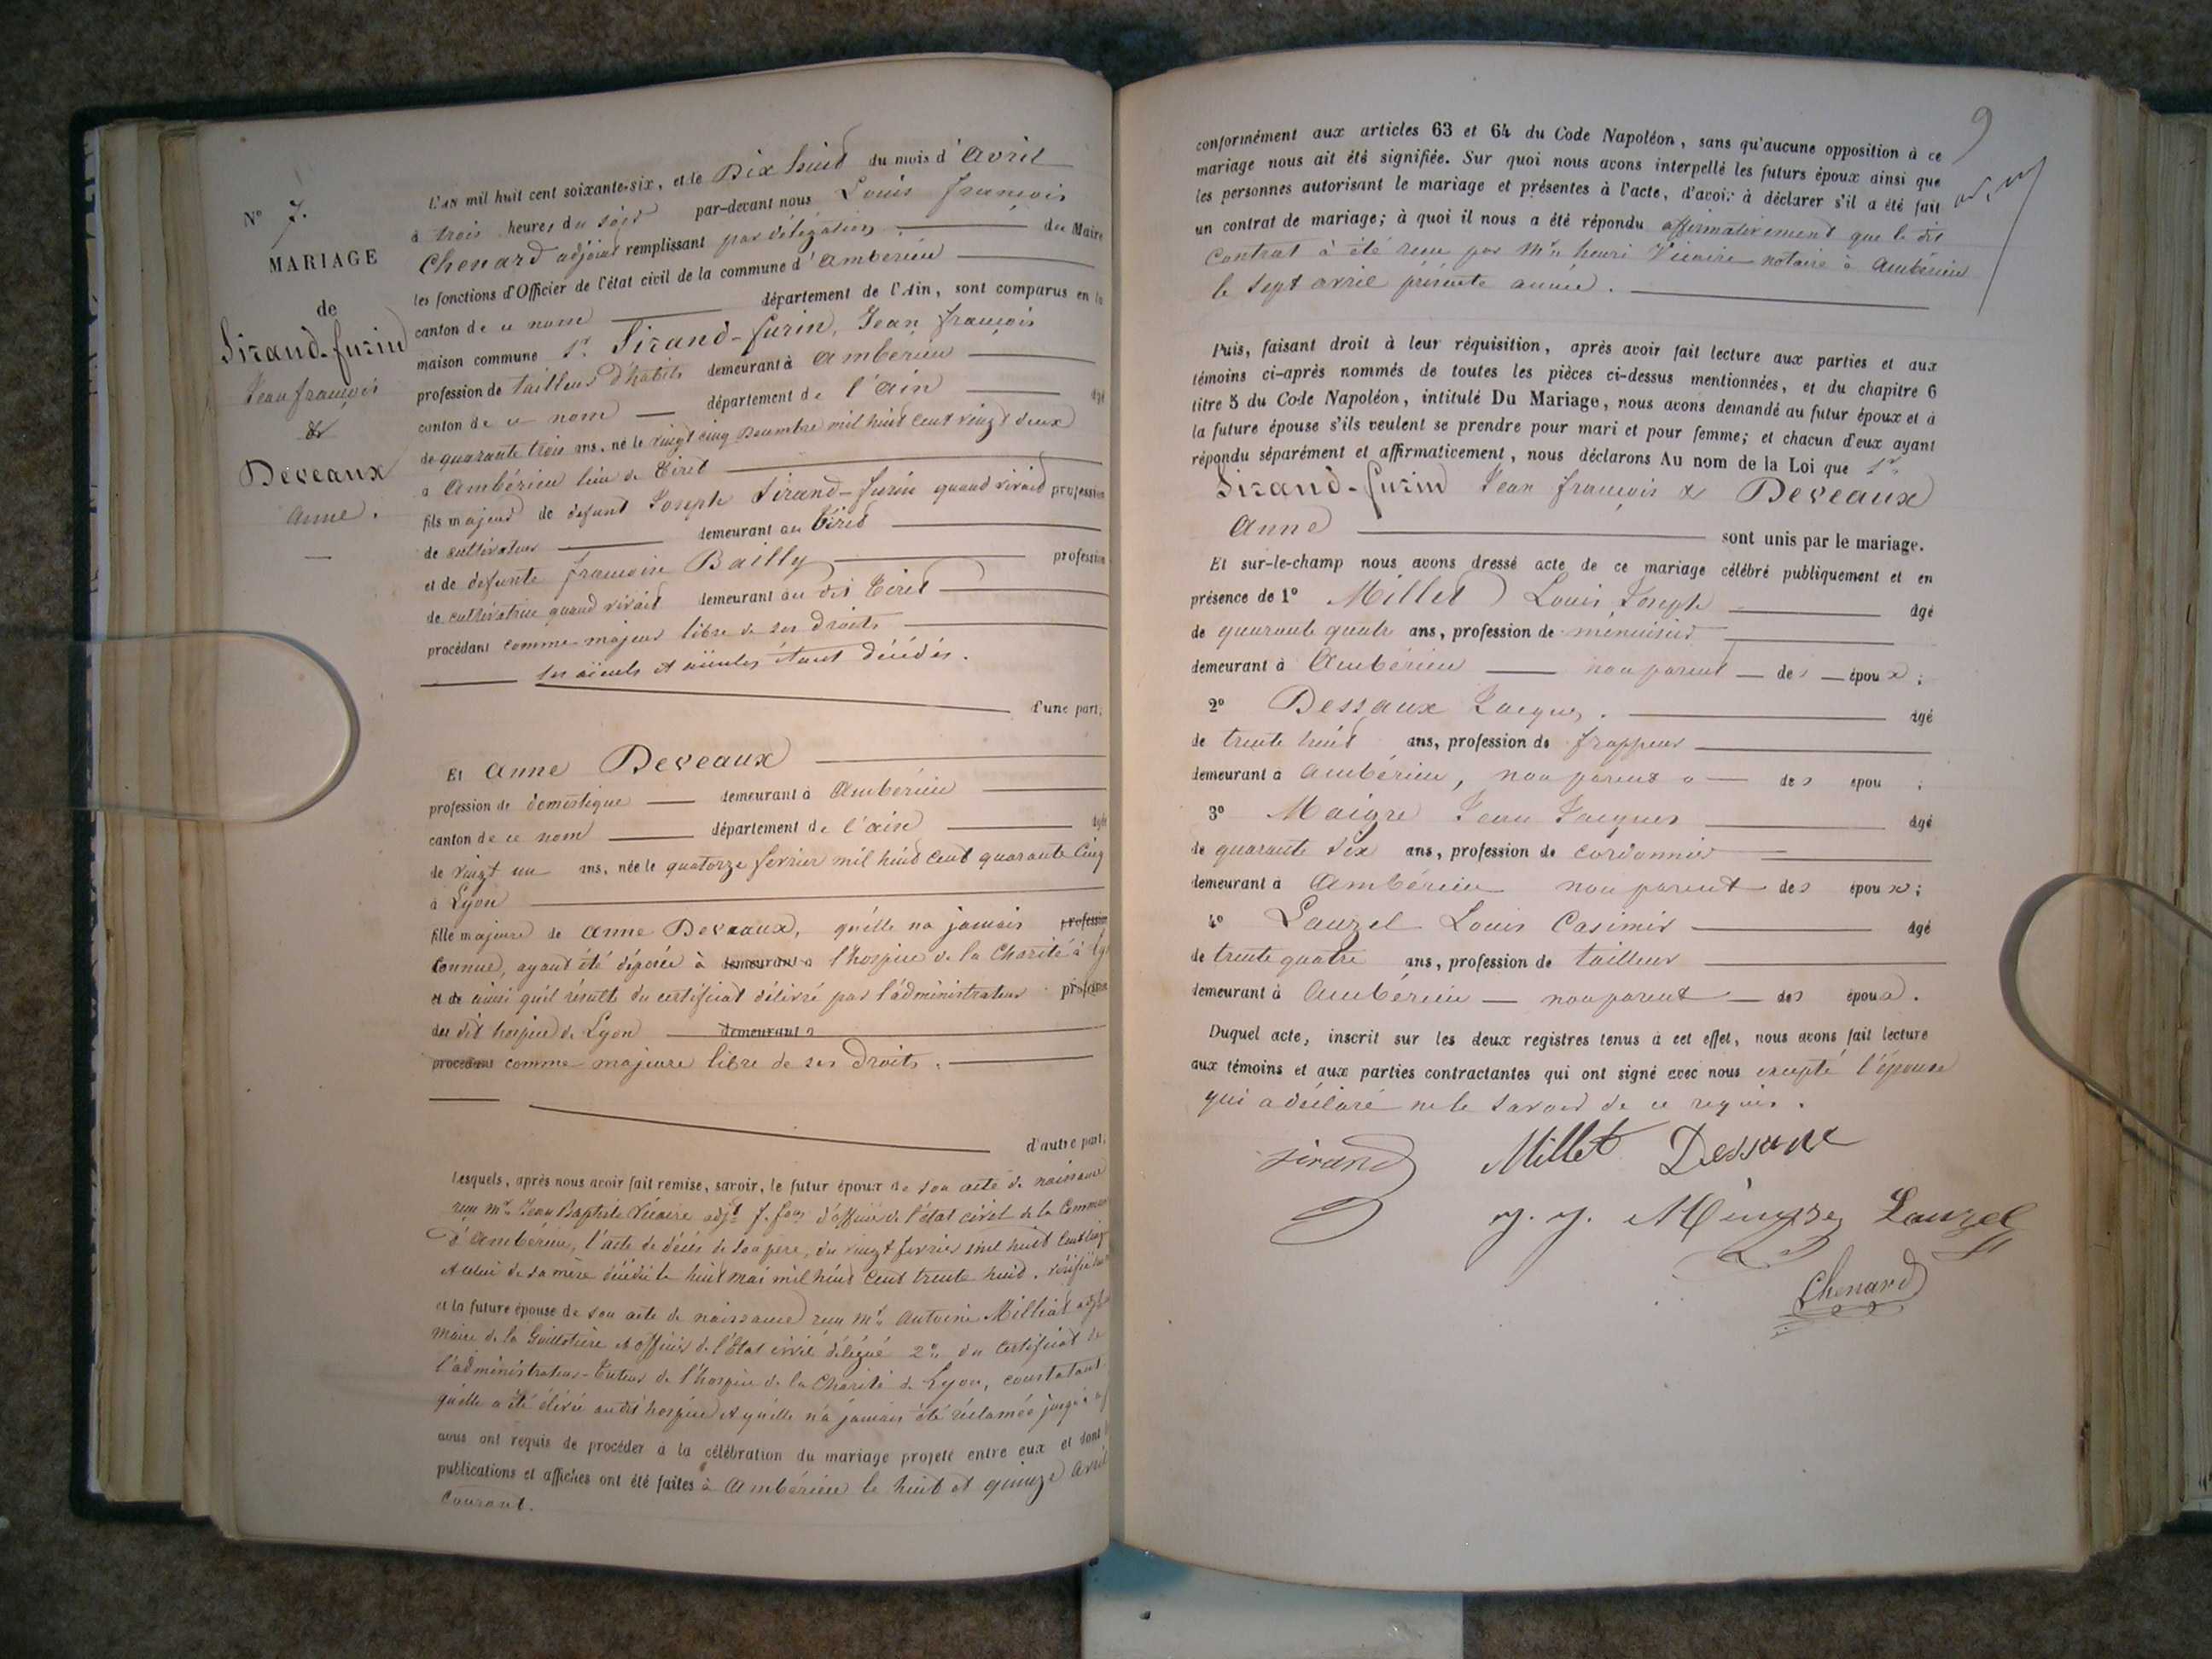 N° 7.
MARIAGE
de
Sirand-furin
Jean françois
&
Deveaux
anne.
L'AN mil huit cent soixante-six, et le Dix huit du mois d'avril
à trois heures du soir par-devant nous Louis françois
Chenard adjoint remplissant par délégation du Maire
les fonctions d'Officier de l'état civil de la commune d'ambérieu
canton de ce nom département de l'Ain, sont comparus en la
maison commune Sr. Sirand-furin, Jean françois
profession de tailleur d'habits demeurant à ambérieu
canton de ce nom département de l'ain âgé
de quarante trois ans, né le vingt cinq Decembre mil huit cent vingt deux
à Ambérieu lieu de Tiret
fils majeur de defunt Joseph Sirand-furin quand vivait profession
de cultivateur demeurant au Tiret
et de defunte françoise Bailly profession
de cultivatrice quand vivait demeurant au dit Tiret
procédant comme majeur libre de ses droits
ses aïeuls et aïeules étant décédés.
d'une part,
Et anne Deveaux
profession de domestique demeurant à Ambérieu
canton de ce nom département de l'ain âgée
de vingt un ans, née le quatorze fevrier mil huit cent quarante cinq
à Lyon
fille majeure de anne Deveaux, qu'elle na jamais profession
connue, ayant été déposée à demeurant à l'hospice de la Charité à
et de ainsi qu'il résulte du certificat délivré par l'administrateur profession
du dit hospice de Lyon demeurant à
procédant comme majeure libre de ses droits.
d'autre part.
Lesquels, après nous avoir fait remise, savoir, le futur époux de son acte de naissance
reçu Mr. Jean Baptiste Vicaire adjt f. d'officier de l'état civil de la Commune
d'Ambérieu, l'acte de décès de son père, du vingt fevrier mil huit cent
et celui de sa mère décédée le huit mai mil huit cent trente huit.
et la future épouse de son acte de naissance reçu Mr. Antoine Milliat
maire de la Guillotière et officier de l'État civil délégué 2° du certificat de
l'administrateur-tuteur de l'hospice de la Charité de Lyon, constatant
qu'elle a été élevée au dit hospice et qu'elle n'a jamais été réclamée
nous ont requis de procéder à la célébration du mariage projeté entre eux et dont
publications et affiches ont été faites à Ambérieu le huit et quinze avril
courant.
9
conformément aux articles 63 et 64 du Code Napoléon, sans qu'aucune opposition à ce
mariage nous ait été signifiée. Sur quoi nous avons interpellé les futurs époux ainsi que
les personnes autorisant le mariage et présentes à l'acte, d'avoir à déclarer s'il a été fait
un contrat de mariage; à quoi il nous a été répondu affirmativement que le dit
Contrat à été reçu par Mr. henri Vicaire notaire à Ambérieu
le sept avril présente année.
Puis, faisant droit à leur réquisition, après avoir fait lecture aux parties et aux
témoins ci-après nommés de toutes les pièces ci-dessus mentionnées, et du chapitre 6
titre 5 du Code Napoléon, intitulé Du Mariage, nous avons demandé au futur époux et à
la future épouse s'ils veulent se prendre pour mari et pour femme; et chacun d'eux ayant
répondu séparément et affirmativement, nous déclarons Au nom de la Loi que Sr.
Sirand-furin Jean françois & Deveaux
Anne sont unis par le mariage.
Et sur-le-champ nous avons dressé acte de ce mariage célébré publiquement et en
présence de 1° Millet Louis Joseph âgé
de quarante quatre ans, profession de menuisier
demeurant à Ambérieu non parent des époux;
2° Dessaux Jacques. âgé
de trente huit ans, profession de frappeur
demeurant à ambérieu, non parent des epou ;
3° Maigre Jean Jacques âgé
de quarante six ans, profession de cordonnier
demeurant à Ambérieu non parent des époux;
4° Lauzel Louis Casimir âgé
de trente quatre ans, profession de tailleur
demeurant à Ambérieu non parent des époux.
Duquel acte, inscrit sur les deux registres tenus à cet effet, nous avons fait lecture
aux témoins et aux parties contractantes qui ont signé avec nous excepté l'épouse
qui a déclaré ne le savoir de ce requis.
Sirand Millet Dessaux
J. J. Meigre Lauzel
Chenard